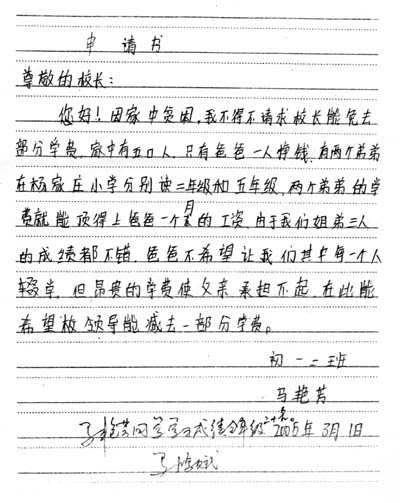 申请书
尊敬的校长：
您好！因家中贫困，我不得不请求校长能免去
部分学费，家中有五口人，只有爸爸一人挣钱，有两个弟弟
在杨家庄小学分别读二年级和五年级，两个弟弟的学
费就能顶得上爸爸一个月的工资，由于我们姐弟三人
的成绩都不错，爸爸不希望让我们其中每一个人
辍学，但昂贵的学费使父亲承担不起，在此能
希望校领导能减去一部分学费。
初一二班
马艳芳
2005年3月1日